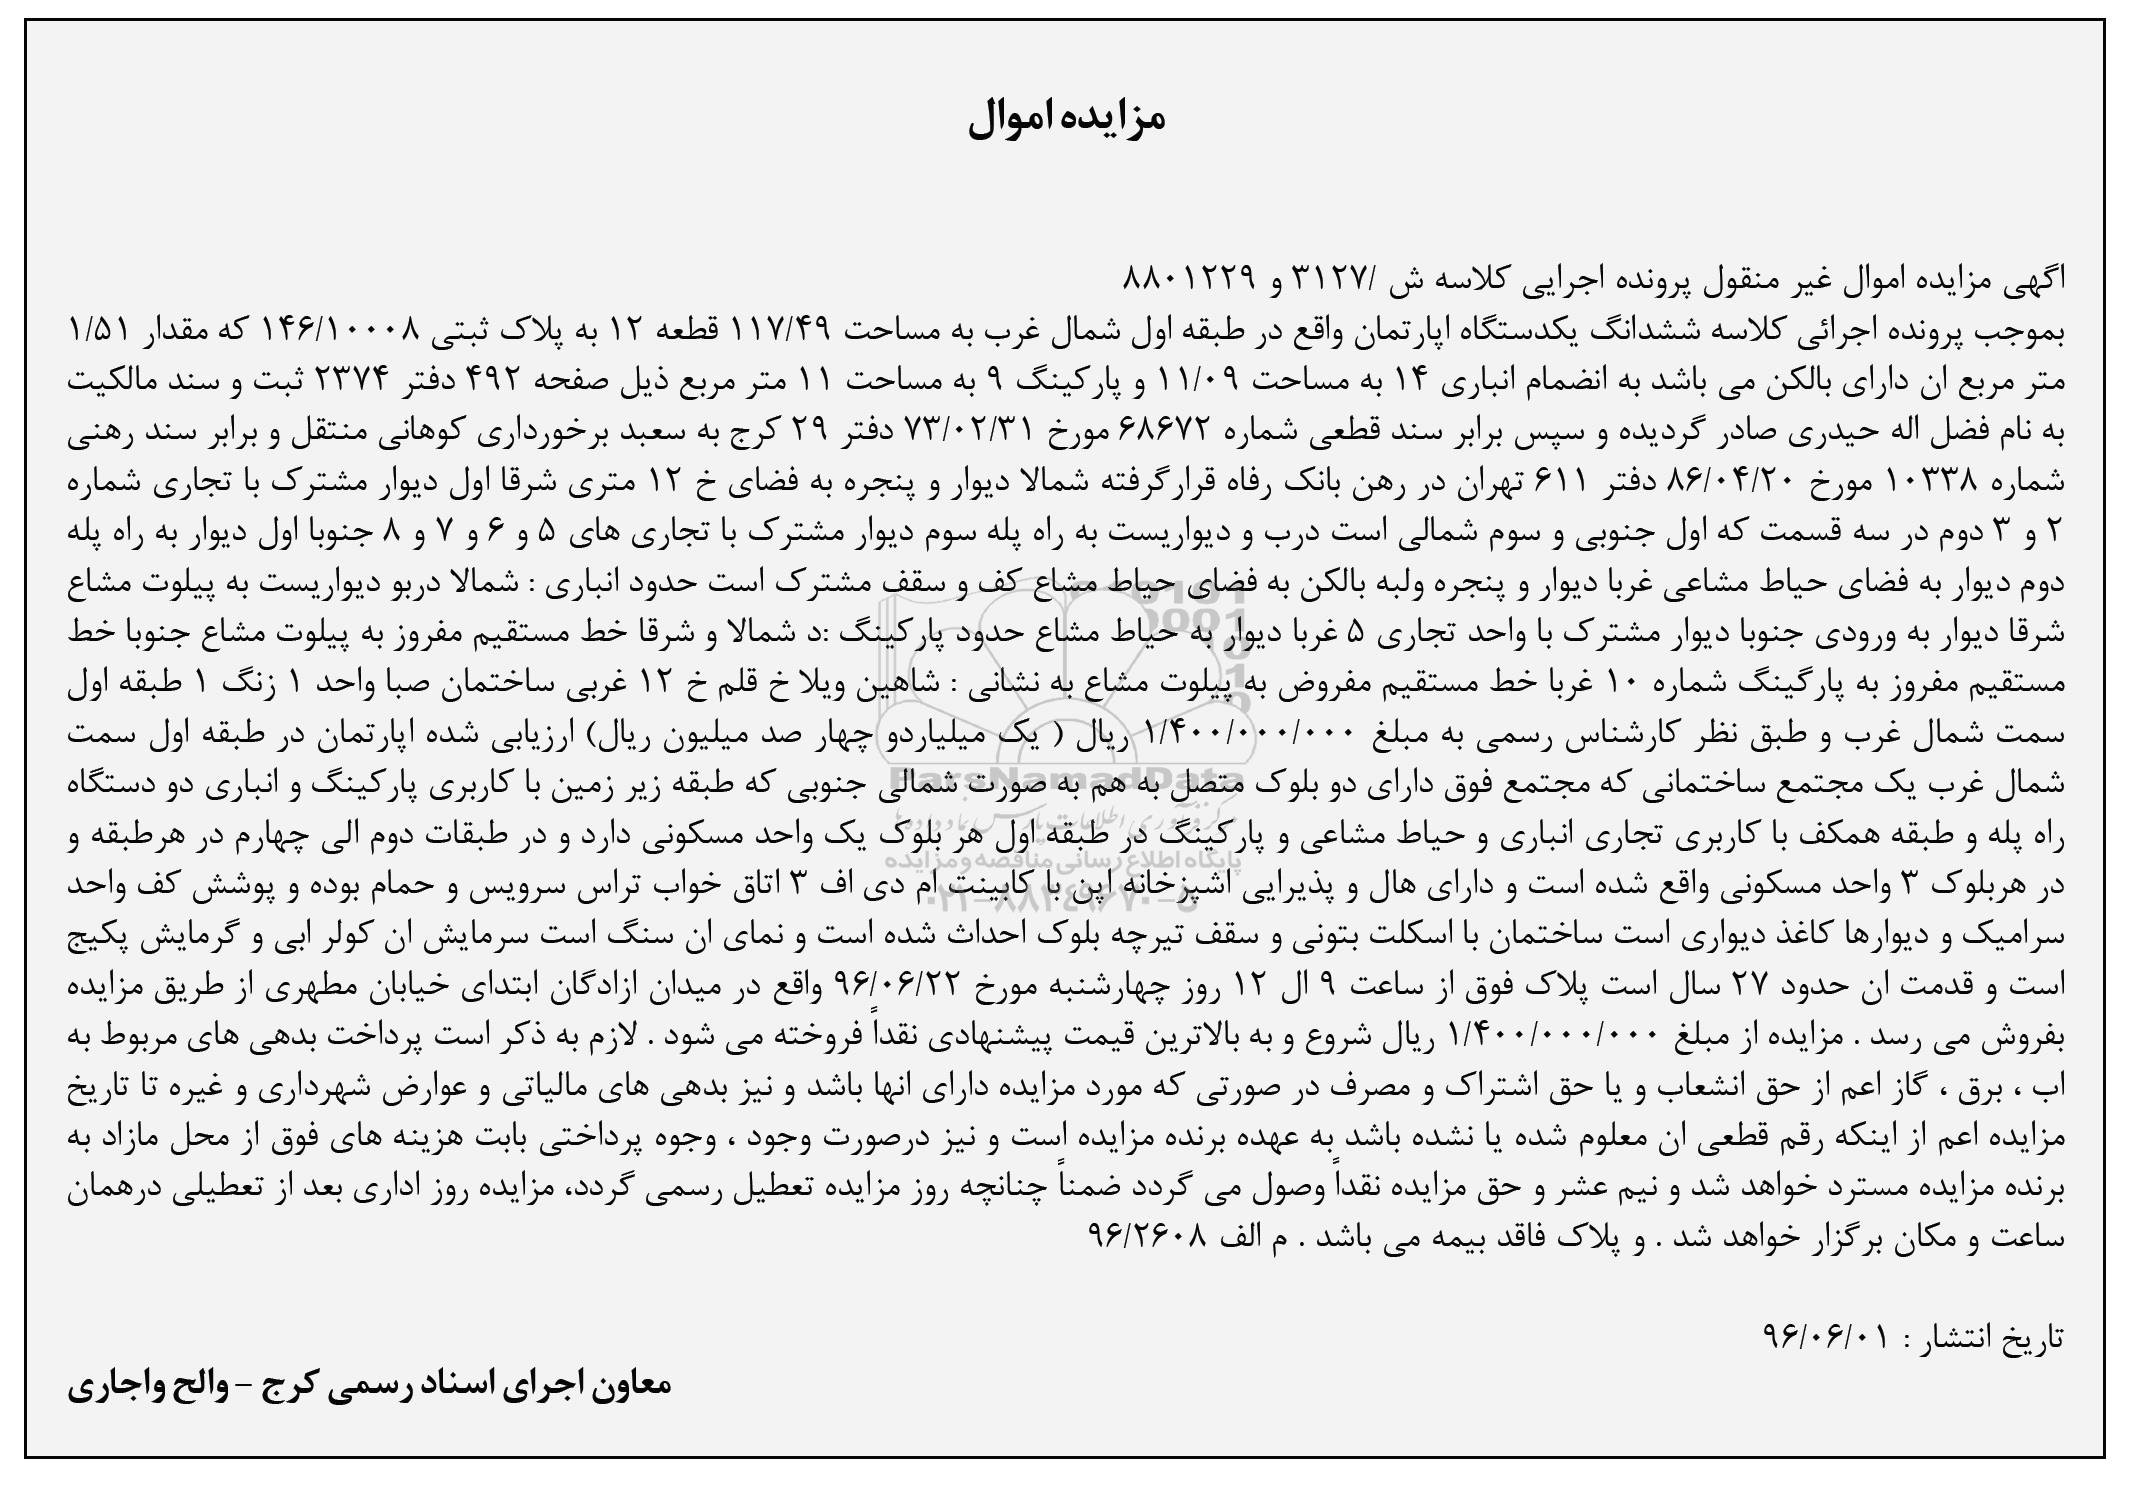 مزایده اموال
اگهی مزایده اموال غیر منقول پرونده اجرایی کلاسه ش /۳۱۲۷ و ۸۸۰۱۲۲۹
بموجب پرونده اجرائی کلاسه ششدانگ یکدستگاه اپارتمان واقع در طبقه اول شمال غرب به مساحت ۱۱۷/۴۹ قطعه ۱۲ به پلاک ثبتی ۱۴۶/۱۰۰۰۸ که مقدار ۱/۵۱
متر مربع ان دارای بالکن می باشد به انضمام انباری ۱۴ به مساحت ۱۱/۰۹ و پارکینگ ۹ به مساحت ۱۱ متر مربع ذیل صفحه ۴۹۲ دفتر ۲۳۷۴ ثبت و سند مالکیت
به نام فضل اله حیدری صادر گردیده و سپس برابر سند قطعی شماره ۶۸۶۷۲ مورخ ۷۳/۰۲/۳۱ دفتر ۲۹ کرج به سعبد برخورداری کوهانی منتقل و برابر سند رهنی
شماره ۱۰۳۳۸ مورخ ۸۶/۰۴/۲۰ دفتر ۶۱۱ تهران در رهن بانک رفاه قرارگرفته شمالا دیوار و پنجره به فضای خ ۱۲ متری شرقا اول دیوار مشترک با تجاری شماره
۲ و ۳ دوم در سه قسمت که اول جنوبی و سوم شمالی است درب و دیواریست به راه پله سوم دیوار مشترک با تجاری های ۵ و ۶ و ۷ و ۸ جنوبا اول دیوار به راه پله
دوم دیوار به فضای حیاط مشاعی غربا دیوار و پنجره ولبه بالکن به فضای حیاط مشاع کف و سقف مشترک است حدود انباری : شمالا دربو دیواریست به پیلوت مشاع
شرقا دیوار به ورودی جنوبا دیوار مشترک با واحد تجاری ۵ غربا دیوار به حیاط مشاع حدود پارکینگ :د شمالا و شرقا خط مستقیم مفروز به پیلوت مشاع جنوبا خط
مستقیم مفروز به پارگینگ شماره ۱۰ غربا خط مستقیم مفروض به پیلوت مشاع به نشانی : شاهین ویلا خ قلم خ ۱۲ غربی ساختمان صبا واحد ۱ زنگ ۱ طبقه اول
سمت شمال غرب و طبق نظر کارشناس رسمی به مبلغ ۱/۴۰۰/۰۰۰/۰۰۰ ریال ( یک میلیاردو چهار صد میلیون ریال) ارزیابی شده اپارتمان در طبقه اول سمت
شمال غرب یک مجتمع ساختمانی که مجتمع فوق دارای دو بلوک متصل به هم به صورت شمالی جنوبی که طبقه زیر زمین با کاربری پارکینگ و انباری دو دستگاه
راه پله و طبقه همکف با کاربری تجاری انباری و حیاط مشاعی و پارکینگ در طبقه اول هر بلوک یک واحد مسکونی دارد و در طبقات دوم الی چهارم در هرطبقه و
در هربلوک ۳ واحد مسکونی واقع شده است و دارای هال و پذیرایی اشپزخانه اپن با کابینت ام دی اف ۳ اتاق خواب تراس سرویس و حمام بوده و پوشش کف واحد
سرامیک و دیوارها کاغذ دیواری است ساختمان با اسکلت بتونی و سقف تیرچه بلوک احداث شده است و نمای ان سنگ است سرمایش ان کولر ابی و گرمایش پکیج
است و قدمت ان حدود ۲۷ سال است پلاک فوق از ساعت ۹ ال ۱۲ روز چهارشنبه مورخ ۹۶/۰۶/۲۲ واقع در میدان ازادگان ابتدای خیابان مطهری از طریق مزایده
بفروش می رسد . مزایده از مبلغ ۱/۴۰۰/۰۰۰/۰۰۰ ریال شروع و به بالاترین قیمت پیشنهادی نقداً فروخته می شود . لازم به ذکر است پرداخت بدهی های مربوط به
اب ، برق ، گاز اعم از حق انشعاب و یا حق اشتراک و مصرف در صورتی که مورد مزایده دارای انها باشد و نیز بدهی های مالیاتی و عوارض شهرداری و غیره تا تاریخ
مزایده اعم از اینکه رقم قطعی ان معلوم شده یا نشده باشد به عهده برنده مزایده است و نیز درصورت وجود ، وجوه پرداختی بابت هزینه های فوق از محل مازاد به
برنده مزایده مسترد خواهد شد و نیم عشر و حق مزایده نقداً وصول می گردد ضمناً چنانچه روز مزایده تعطیل رسمی گردد، مزایده روز اداری بعد از تعطیلی درهمان
ساعت و مکان برگزار خواهد شد . و پلاک فاقد بیمه می باشد . م الف ۹۶/۲۶۰۸
تاریخ انتشار : ۹۶/۰۶/۰۱
معاون اجرای اسناد رسمی کرج – والح واجاری
ParsNamadData
پایگاه اطلاع رسانی مناقصه و مزایده